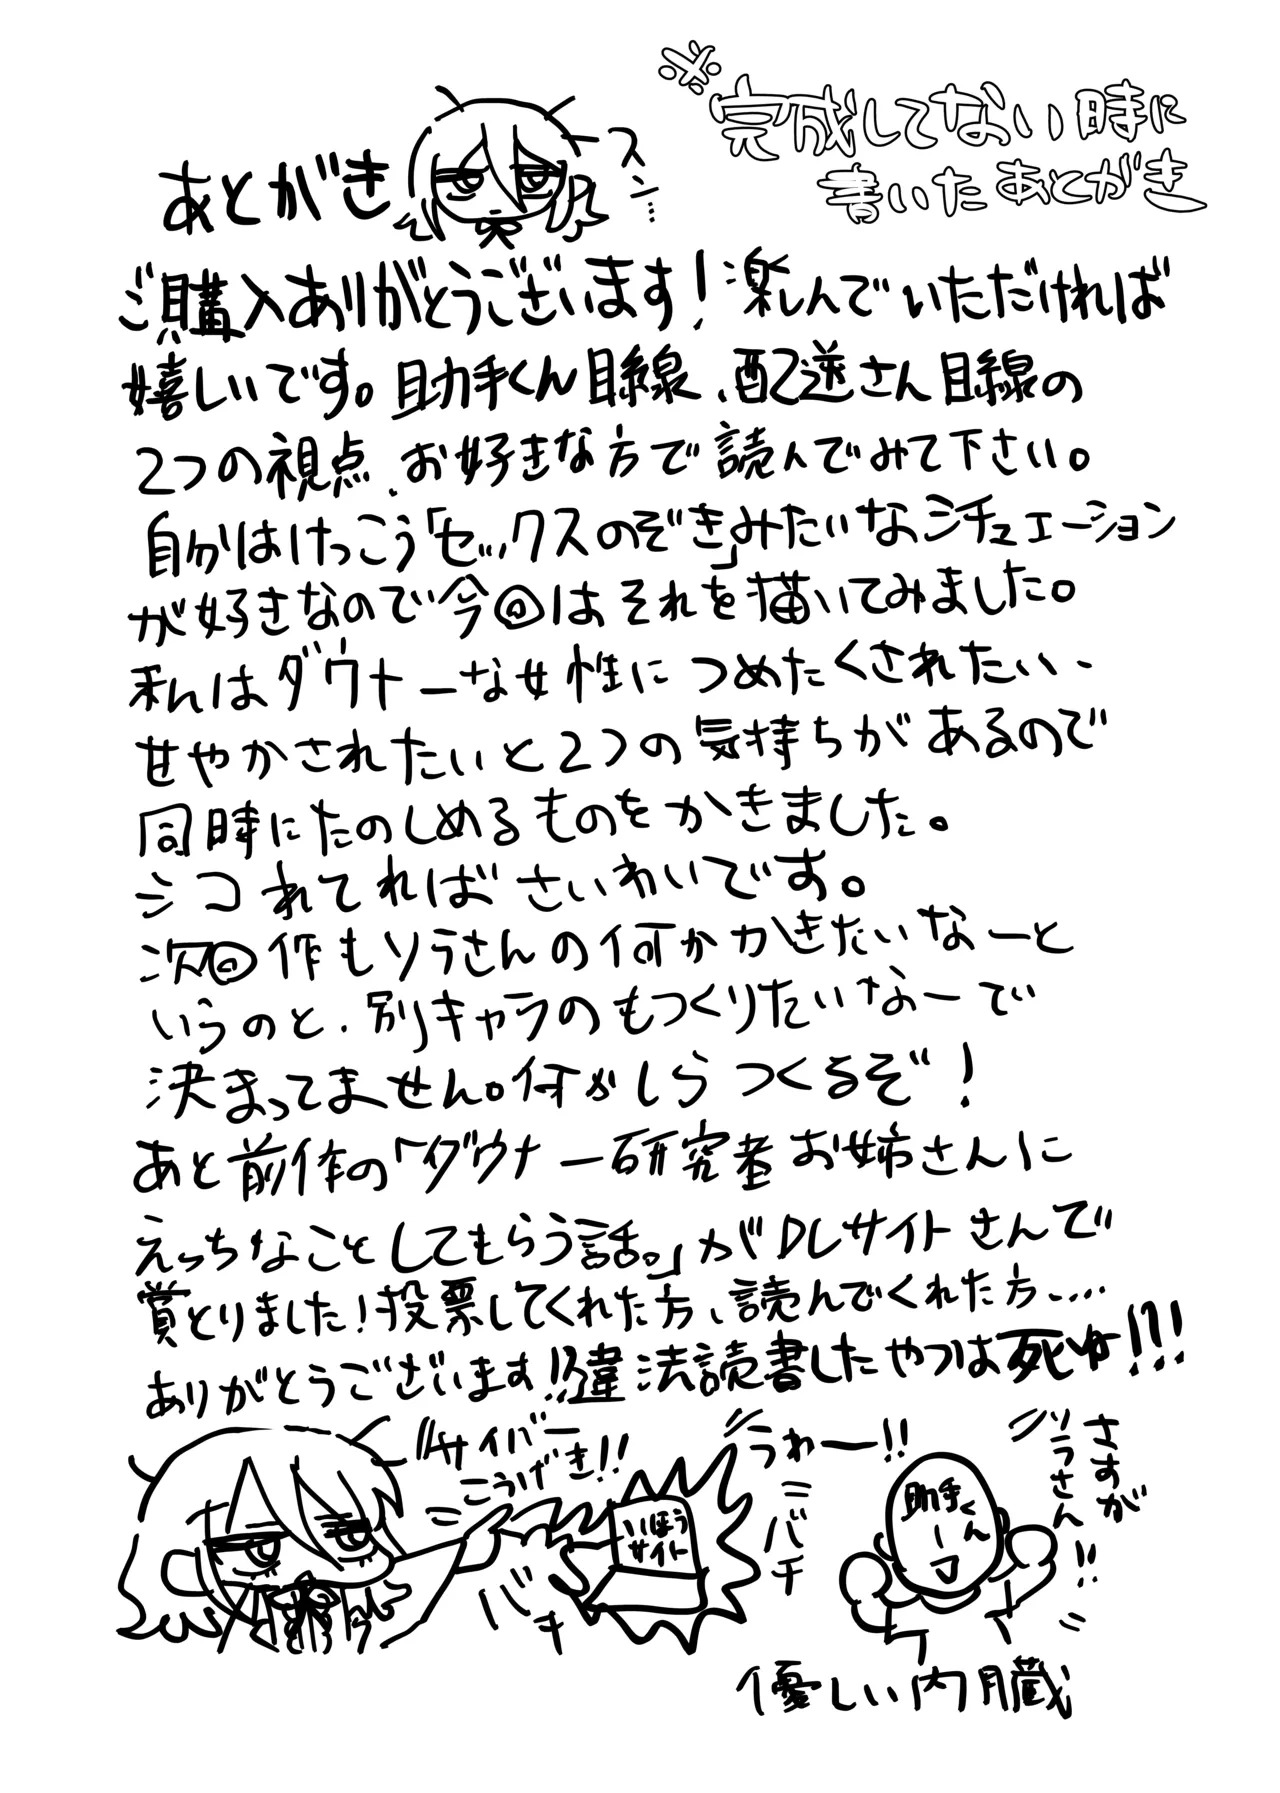 ※完成してない時に
書いたあとがき
あとがき
スン…
ご購入ありがとうございます!楽しんでいただければ
嬉しいです。助手くん目線、配送さん目線の
2つの視点、お好きな方で読んでみて下さい。
自分はけっこう「セックスのぞき」みたいなシチュエーション
が好きなので今回はそれを描いてみました。
私はダウナーな女性につめたくされたい、
甘やかされたいと2つの気持ちがあるので
同時にたのしめるものをかきました。
シコれてればさいわいです。
次回作もソラさんの何かかきたいなーと
いうのと、別キャラのもつくりたいなーで
決まってません。何かしらつくるぞ!
あと前作の「ダウナー研究者お姉さんに
えっちなことしてもらう話。」がDLサイトさんで
賞とりました!投票してくれた方、読んでくれた方....
ありがとうございます!!違法読書したやつは死ゆ!!!
サイバー
こうげき!!
いほう
サイト
バキ
うわー!!
バチ
助手くん
さすが
ソラさん!!
優しい内臓